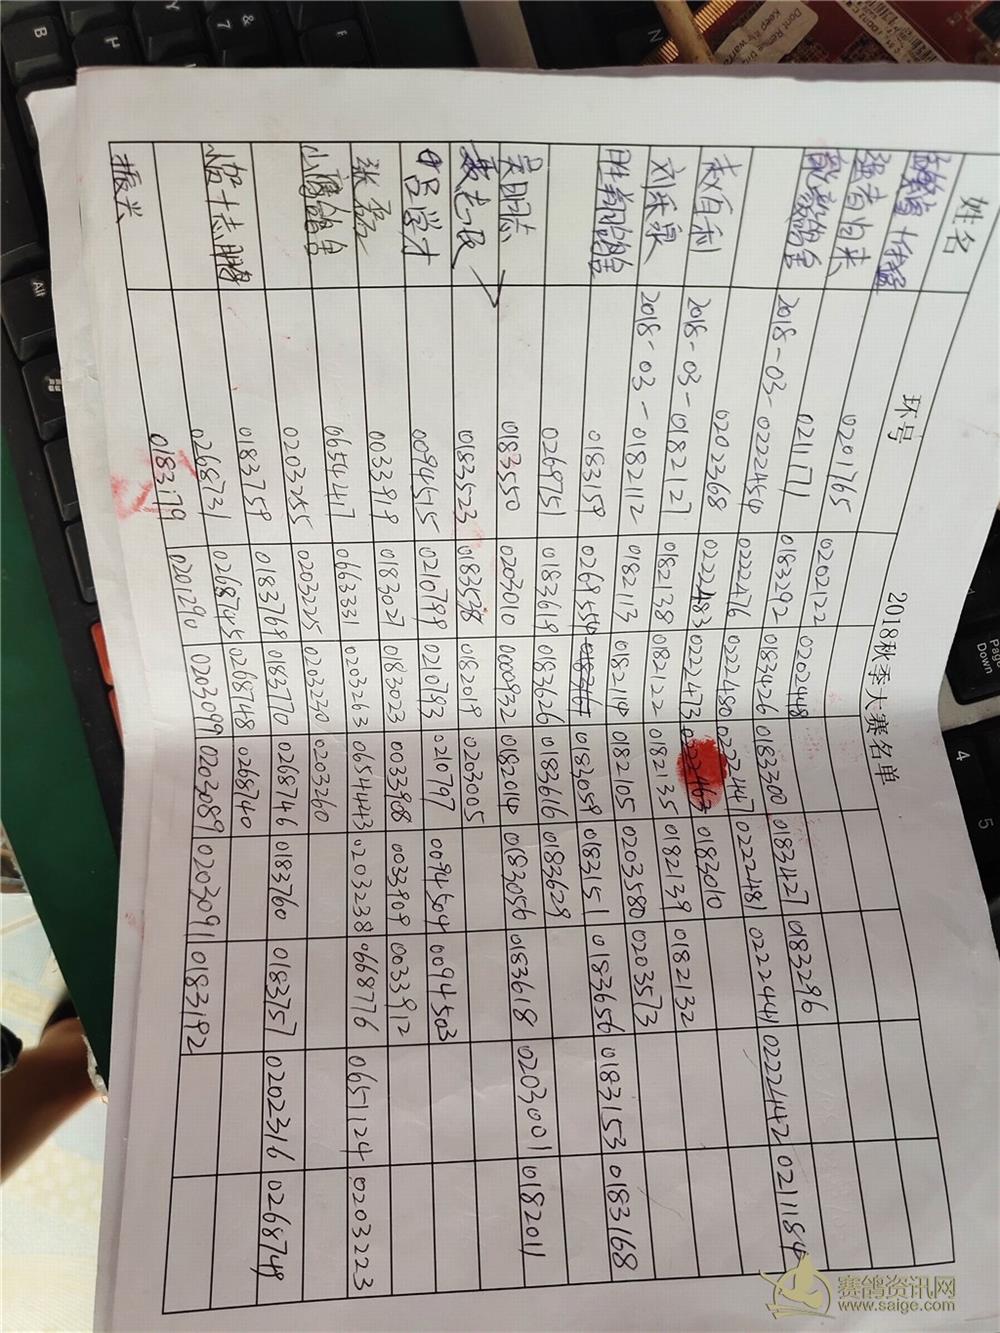 姓名 环号 2018秋季大赛名单
0201765 0202122 0202448
强者归来 0211771 0183292 0183426 0183300 0183427 0183296
鸽舍 2018-03-0222454 0222476 0222480 0222447 0222481 0222444 0222442 0211184
0202368 0222483 0222473 0222463 0183010
赵自利 2018-03-0182127 0182138 0182122 0182135 0182139 0182132
刘乐泉 2018-03-0182112 0182113 0182114 0182105 0203580 0203573
胜利鸽舍 0183159 0268554 0183167 0183059 0183151 0183656 0183153 0183168
0268751 0183619 0183626 0183616 0183629
吴明志 0183550 0203010 0000932 0182014 0183056 0183618 0203001 0182011
0183523 0183578 0182019 0203005
吕学才 0094515 0210789 0210793 0210797 0094504 0094503
张 0033918 0183027 0183023 0033908 0033909 0033912
山鹰鸽舍 0654417 0663331 0203263 0654443 0203238 0668776 0651124 0203223
0203255 0203225 0202230 0203260
0183759 0183769 0183770 0268746 0183760 0183757 0202316 0268748
志鹏 0268731 0268745 0268748 0268740
0183179 0201290 0203099 0203089 0203091 0183192
振兴
赛鸽资讯网
www.saige.com